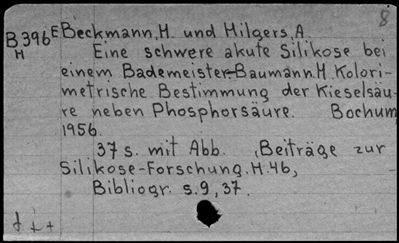 8
B 396 E Beckmann, H. und Hilgers, A.
H Eine schwere akute Silikose bei
einem Bademeister-Baumann. H. Kolori-
metrische Bestimmung der Kieselsäu-
re neben Phosphorsäure. Bochum
1956.
37 s. mit Abb. (Beiträge zur
Silikose-Forschung. H. 46,
Bibliogr. s. 9, 37.